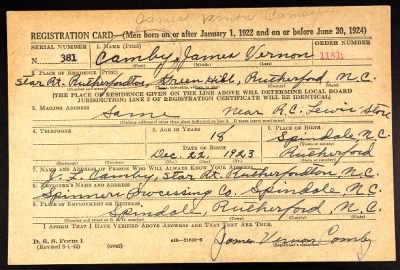 James Vernon Camby
REGISTRATION CARD—(Men born on or after January 1, 1922 and on or before June 30, 1924)
SERIAL NUMBER 1. NAME (Print) ORDER NUMBER
N 381 Camby James Vernon 11511
(First) (Middle) (Last)
2. PLACE OF RESIDENCE (Print)
Star Rt. Rutherfordton, Green Hill, Rutherford, N.C.
[THE PLACE OF RESIDENCE GIVEN ON THE LINE ABOVE WILL DETERMINE LOCAL BOARD
JURISDICTION; LINE 2 OF REGISTRATION CERTIFICATE WILL BE IDENTICAL]
3. MAILING ADDRESS
Same Near R.C. Lewis Store
[Mailing address if other than place indicated on line 2. If same insert word same]
4. TELEPHONE 5. AGE IN YEARS 6. PLACE OF BIRTH
18 Spindale N.C.
DATE OF BIRTH
Dec. 22, 1923 Rutherford
7. NAME AND ADDRESS OF PERSON WHO WILL ALWAYS KNOW YOUR ADDRESS
Camby, Star Rt. Rutherfordton, N.C.
8. EMPLOYER'S NAME AND ADDRESS
Spinners Processing Co. Spindale N.C.
9. PLACE OF EMPLOYMENT OR BUSINESS
Spindale, Rutherford, N.C.
I AFFIRM THAT I HAVE VERIFIED ABOVE ANSWERS AND THAT THEY ARE TRUE.
D. S. S. Form 1
(Revised 6-1-42) (over) James Vernon Camby